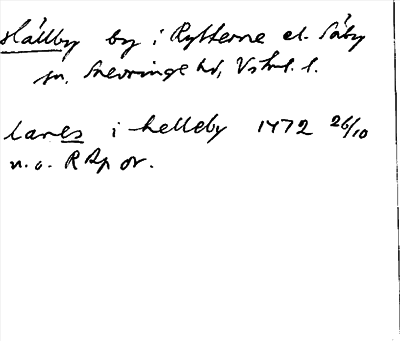 Hällby by i Rytterne el. Säby
sn. Snevringe hd, Vstml. l.
lares i helleby 1472 26/10
n.o. RAp or.